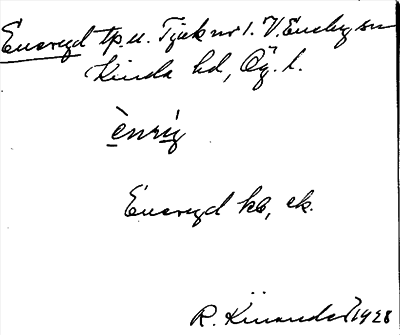 Eneryd tp.u. Tjuk nr 1. V. Eneby sn
Kinda hd, Ög. l.
ènrìg
Eneryd kb, ek.
R. Kinander 1928